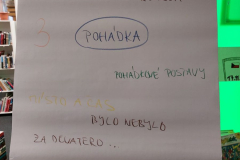 3
POHÁDKA
POHÁDKOVÉ POSTAVY
MÍSTO A ČAS
BYLO NEBYLO
ZA DEVATERO...